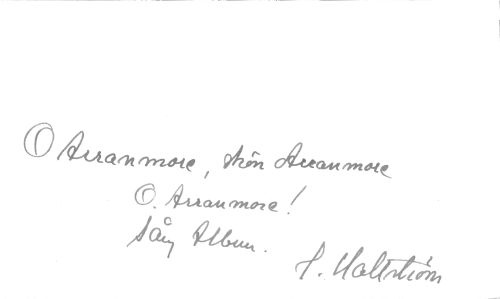 O Arranmore, skön Arranmore
O. Arranmore!
Sång Album.
P. Hallström